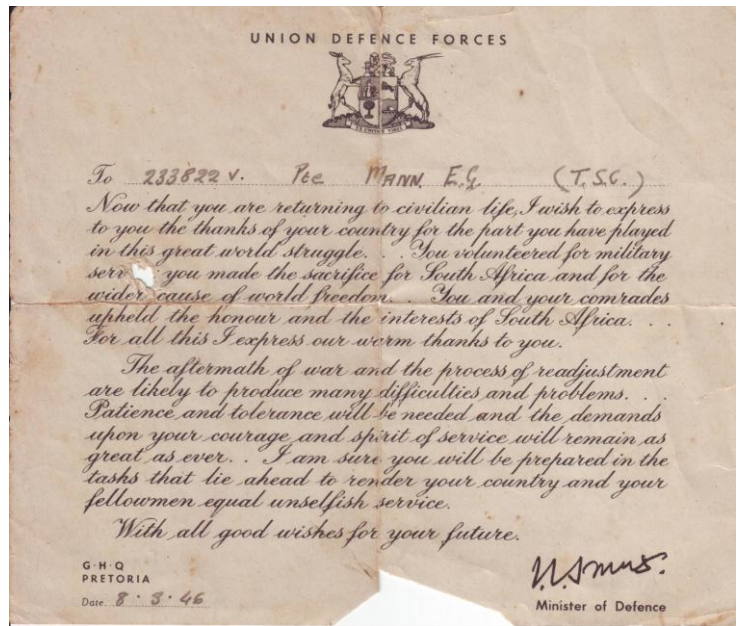 UNION DEFENCE FORCES
EX UNITATE VIRES
To 233822 V. Pte MANN. E.G. (T.S.C.)
Now that you are returning to civilian life, I wish to express
to you the thanks of your country for the part you have played
in this great world struggle. . . You volunteered for military
serv you made the sacrifice for South Africa and for the
wider cause of world freedom. . . You and your comrades
upheld the honour and the interests of South Africa. . .
For all this I express our warm thanks to you.
The aftermath of war and the process of readjustment
are likely to produce many difficulties and problems. . .
Patience and tolerance will be needed and the demands
upon your courage and spirit of service will remain as
great as ever. . I am sure you will be prepared in the
tasks that lie ahead to render your country and your
fellowmen equal unselfish service.
With all good wishes for your future.
G·H·Q
PRETORIA
Date 8·3·46
Minister of Defence